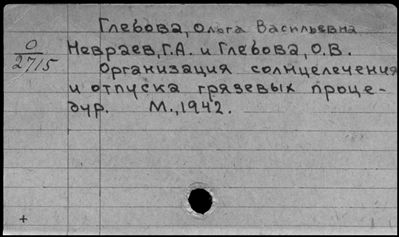 Глебова, Ольга Васильевна
О
2715
Невраев, Г.А. и Глебова, О.В.
Организация солнцелечения
и отпуска грязевых проце-
дур. М., 1942.
+